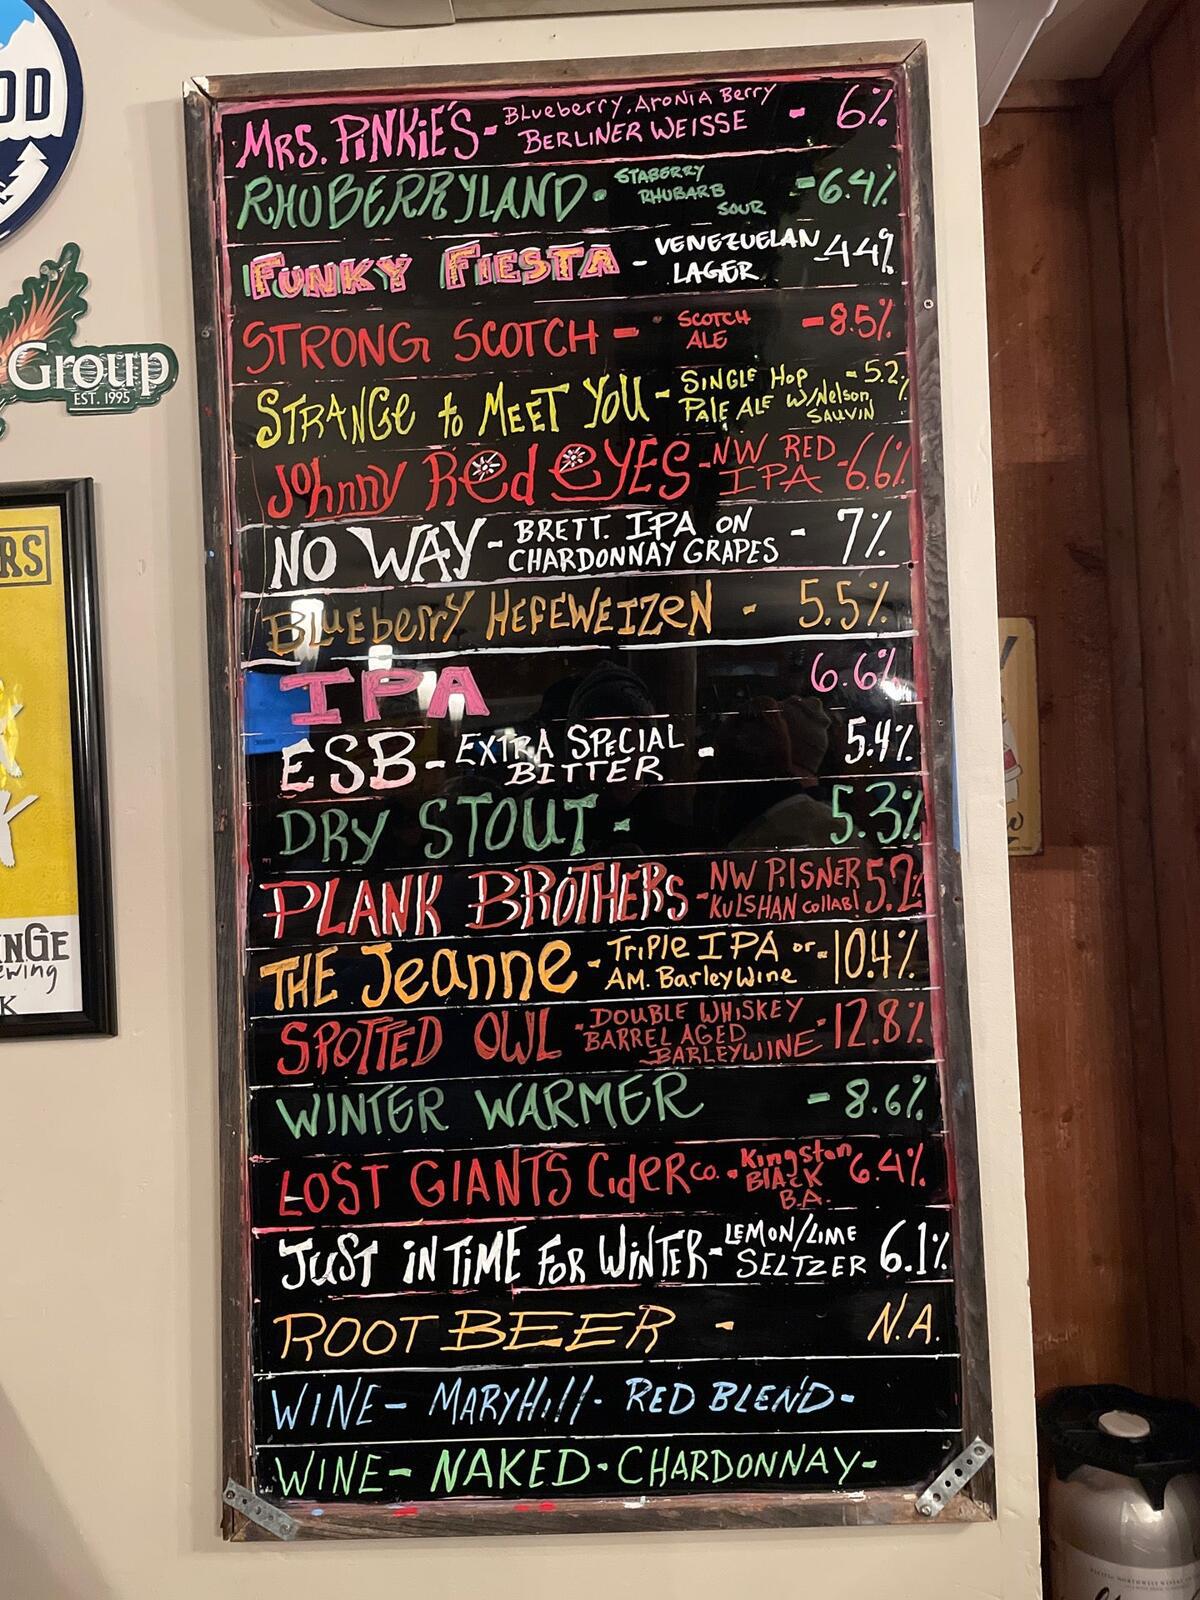 OD
Group
EST. 1995
RS
NGE
ewing
K
MRS. PINKIE'S - BLueberry, AronIA Berry
BERLINER WEISSE - 6%
RHUBERRYLAND - STABERRY
RHUBARB
SOUR - 6.4%
FUNKY FIESTA - VENEZUELAN
LAGER 4.4%
STRONG SCOTCH - SCOTCH
ALE - 8.5%
STRANGe to MEET YOU - SINGLE Hop - 5.2%
PALE ALE W/Nelson
SAUVIN
Johnny Red eYES - NW RED
IPA - 6.6%
NO WAY - BRETT. IPA ON
CHARDONNAY GRAPES - 7%
BLueberry HEFEWEIZEN - 5.5%
IPA 6.6%
ESB - EXTRA SPECIAL
BITTER - 5.4%
DRY STOUT - 5.3%
PLANK BROTHERS - NW PILSNER
KULSHAN COLLAB! 5.2%
THE Jeanne - TriPle IPA or
AM. BarleyWine - 10.4%
SPOTTED OWL - DOUBLE WHISKEY
BARREL AGED
BARLEYWINE - 12.8%
WINTER WARMER - 8.6%
LOST GIANTS CidER co. - Kingston
BlACK
B.A. 6.4%
JUST IN TIME FOR WINTER - LEMON/LIME
SELTZER 6.1%
ROOT BEER - N.A.
WINE - MARYHill - RED BLEND -
WINE - NAKED - CHARDONNAY -